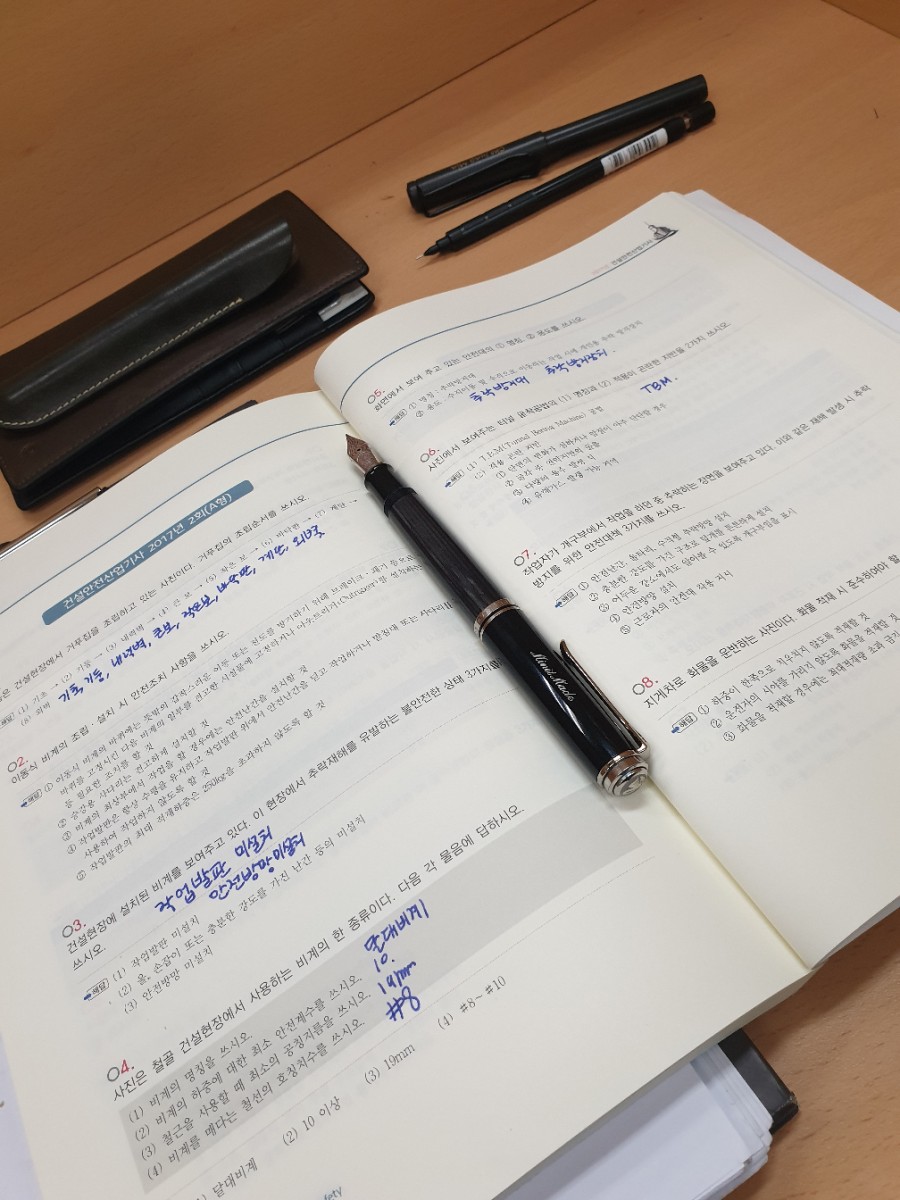 건설안전산업기사 2017년 2회(A형)
은 건설현장에서 거푸집을 조립하고 있는 사진이다. 거푸집의 조립순서를 쓰시오.
(1) 기초 → (2) 기둥 → (3) 내력벽 → (4) 큰 보 → (5) 작은 보 → (6) 바닥판 → (7) 계단 →
(8) 외벽
기초, 기둥, 내력벽, 큰보, 작은보, 바닥판, 계단, 외벽
02.
이동식 비계의 조립·설치 시 안전조치 사항을 쓰시오.
해답 ① 이동식 비계의 바퀴에는 뜻밖의 갑작스러운 이동 또는 전도를 방지하기 위해 브레이크, 쐐기 등으로
바퀴를 고정시킨 다음 비계의 일부를 견고한 시설물에 고정하거나 아웃트리거(Outrigger)를 설치하는
등 필요한 조치를 할 것
② 승강용 사다리는 견고하게 설치할 것
③ 비계의 최상부에서 작업을 할 경우에는 안전난간을 설치할 것
④ 작업발판은 항상 수평을 유지하고 작업발판 위에서 안전난간을 딛고 작업하거나 받침대 또는 사다리를
사용하여 작업하지 않도록 할 것
⑤ 작업발판의 최대 적재하중은 250kg을 초과하지 않도록 할 것
03.
건설현장에 설치된 비계를 보여주고 있다. 이 현장에서 추락재해를 유발하는 불안전한 상태 3가지를
쓰시오.
작업발판 미설치
안전방망미설치
해답 (1) 작업발판 미설치
(2) 울, 손잡이 또는 충분한 강도를 가진 난간 등의 미설치
(3) 안전방망 미설치
04.
사진은 철골 건설현장에서 사용하는 비계의 한 종류이다. 다음 각 물음에 답하시오.
(1) 비계의 명칭을 쓰시오. 달대비계
(2) 비계의 하중에 대한 최소 안전계수를 쓰시오. 10.
(3) 철근을 사용할 때 최소의 공칭지름을 쓰시오. 19mm
(4) 비계를 매다는 철선의 호칭치수를 쓰시오. #8
달대비계 (2) 10 이상 (3) 19mm (4) #8~#10
건설안전산업기사
05.
화면에서 보여 주고 있는 안전대의 ① 명칭, ② 용도를 쓰시오.
해답 ① 명칭 : 추락방지대
추락방지대 추락방지장치.
06.
사진에서 보여주는 터널 굴착공법의 (1) 명칭과 (2) 적용이 곤란한 지반을 2가지 쓰시오.
TBM.
해답 (1) T.B.M(Tunnel Boring Machine) 공법
(2) 적용 곤란 지반
07.
작업자가 개구부에서 작업을 하던 중 추락하는 장면을 보여주고 있다. 이와 같은 재해 발생 시 추락
방지를 위한 안전대책 3가지를 쓰시오.
해답 ① 안전난간, 울타리, 수직형 추락방망 설치
② 충분한 강도를 가진 구조로 덮개를 튼튼하게 설치
③ 어두운 장소에서도 알아볼 수 있도록 개구부임을 표시
④ 안전방망 설치
⑤ 근로자의 안전대 착용 지시
08.
지게차로 화물을 운반하는 사진이다. 화물 적재 시 준수하여야 할
해답 ① 하중이 한쪽으로 치우치지 않도록 적재할 것
② 운전자의 시야를 가리지 않도록 화물을 적재할 것
③ 화물을 적재할 경우에는 최대적재량 초과 금지